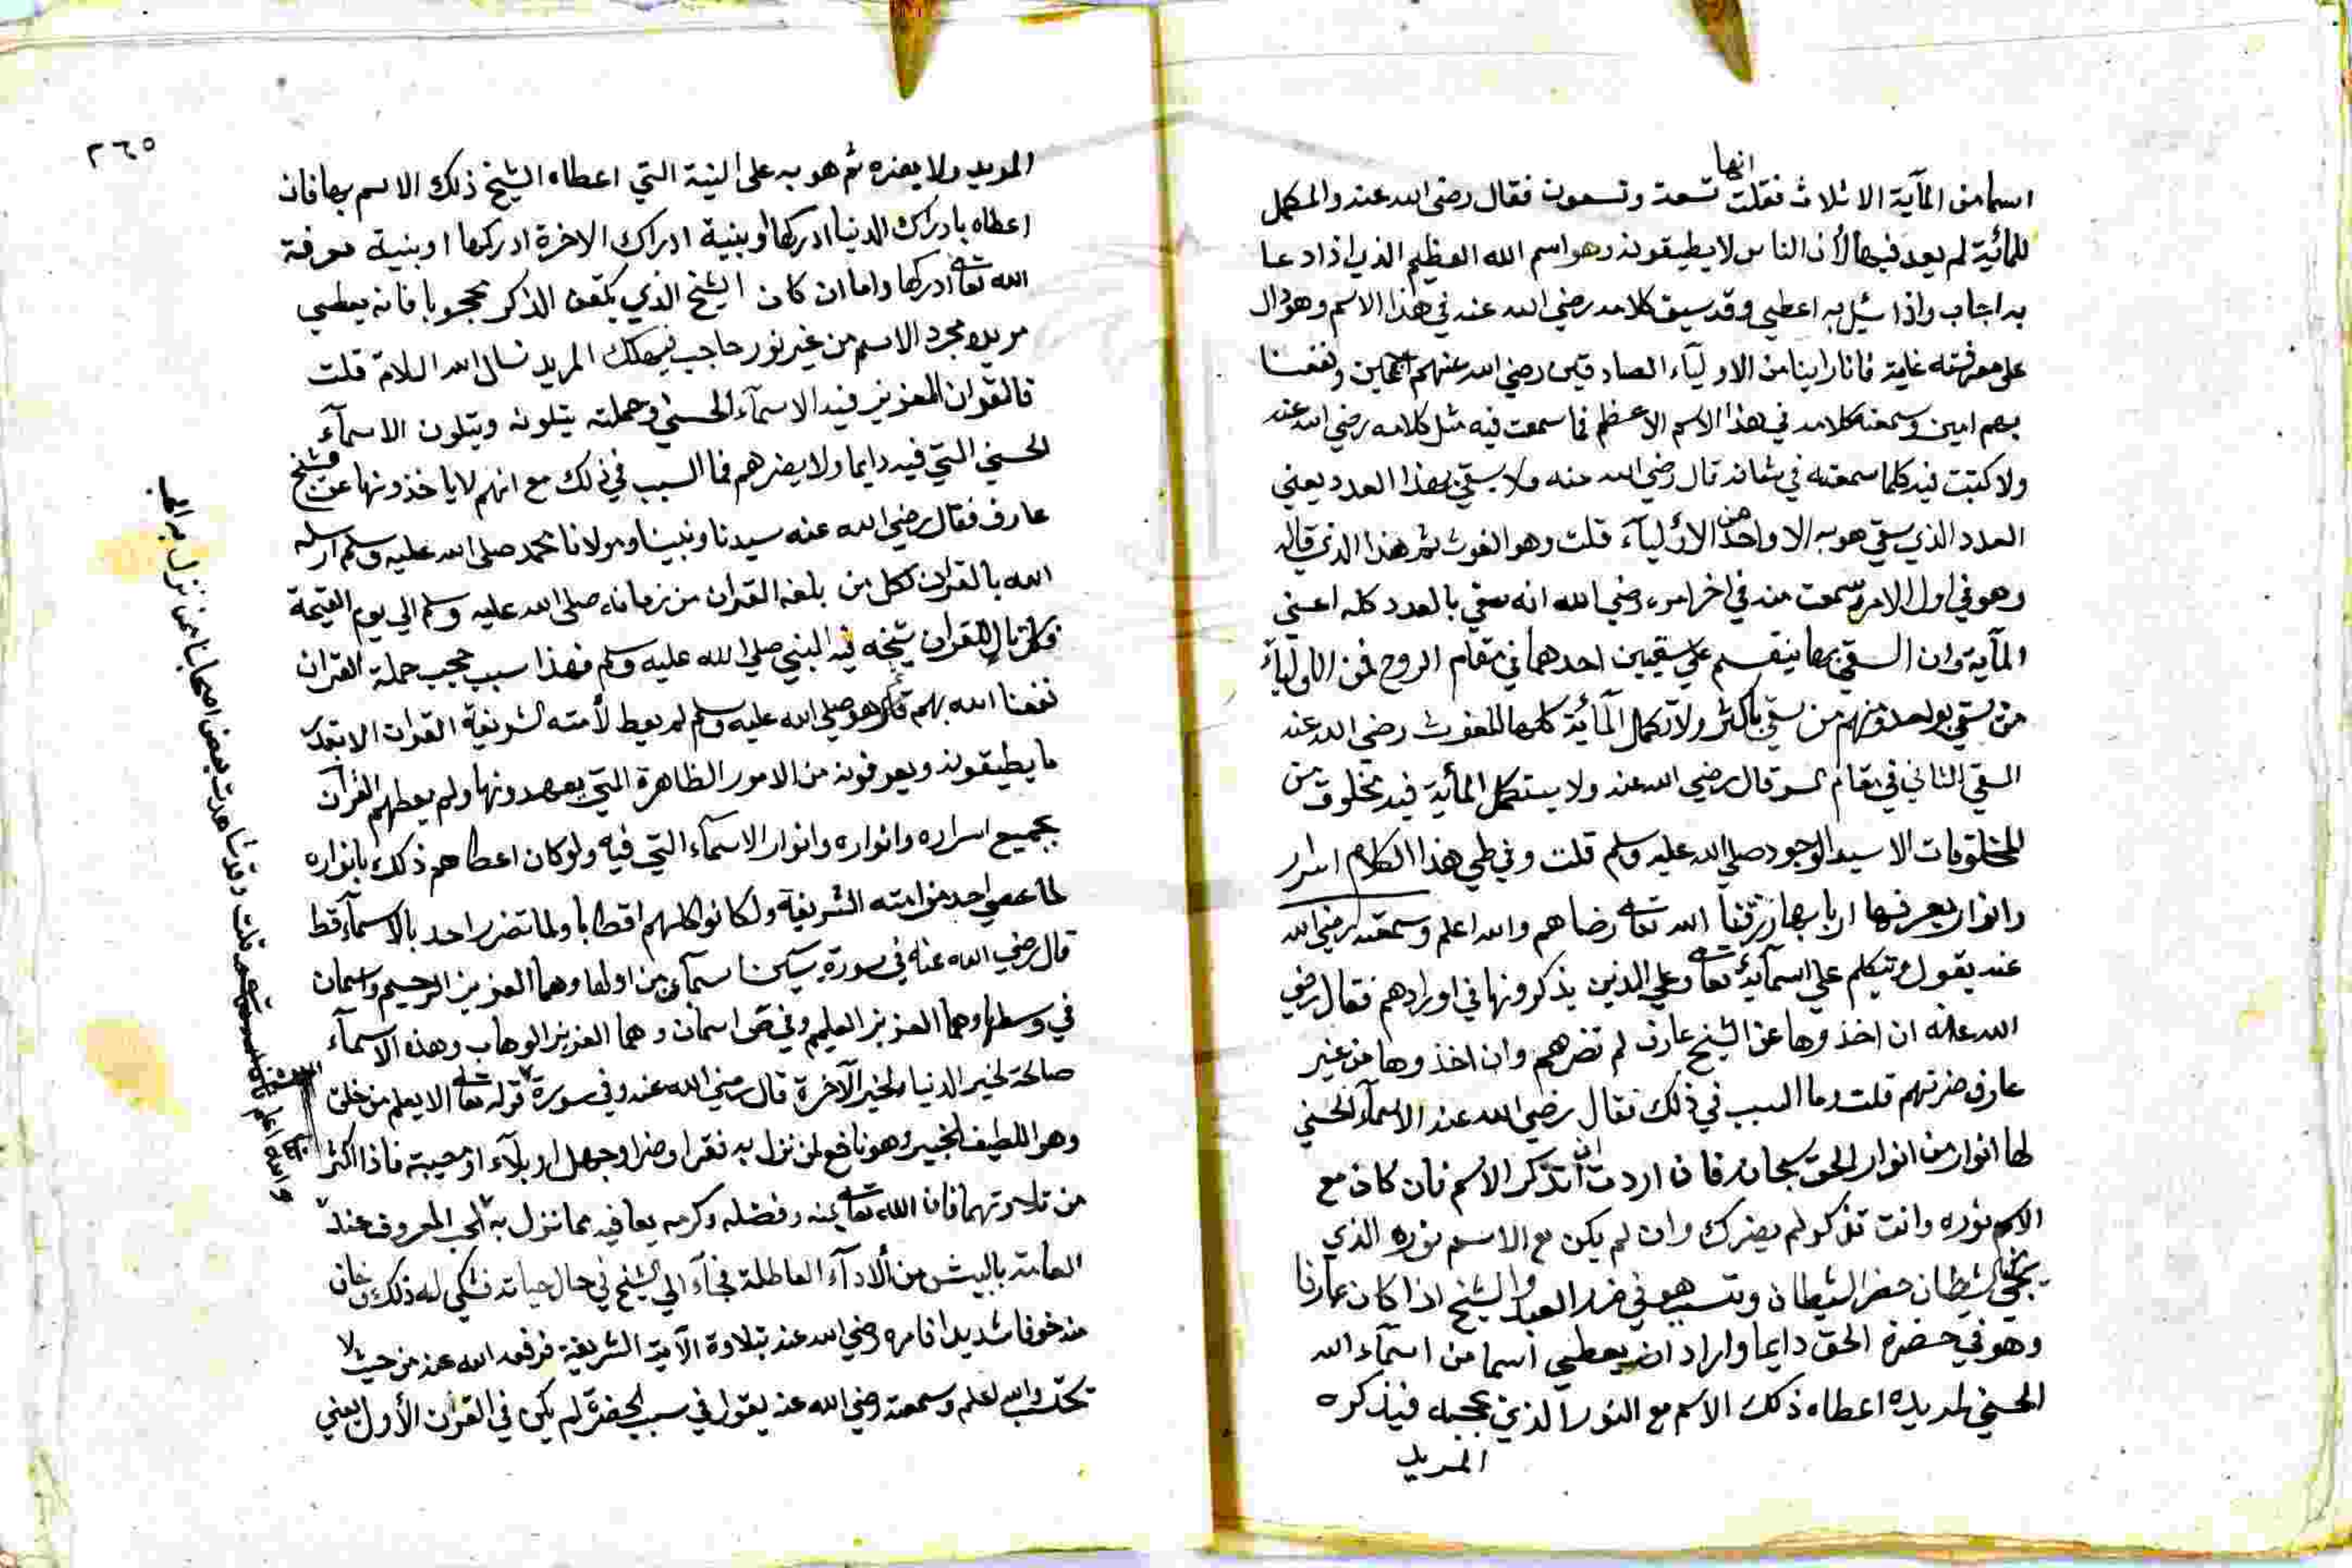 انها
اسما من المآية الا ثلاث فقلت تسعة وتسعون فقال رضي الله عنه والمكمل
للمائية لم يعد فيها لأن الناس لا يطيقونه وهو اسم الله العظيم الذي اذا دعا
به اجاب واذا سئل به اعطي وقد سبق كلامه رضي الله عنه في هذا الاسم وهو دال
على معرفته غاية فانا راينا من الاوليآء الصادقين رضي الله عنهم اجمعين ونفعنا
بهم امين وسمعنا كلامه في هذا الاسم الاعظم فما سمعت فيه مثل كلامه رضي الله عنه
ولا كتبت فيه كلما سمعته في شانه قال رضي الله عنه ولا يسقي بهذا العدد يعني
العدد الذي سقي هو به الا واحد من الأوليآء قلت وهو الغوث ثم هذا الذي قاله
وهو في اول الامر وسمعت منه في اخر امره رضي الله انه سقي بالعدد كله اعني
المآية وان السقي بها ينقسم على سقيين احدهما في مقام الروح فمن الاوليآء
من سقي بواحد ومنهم من سقي باكثر ولا تكمل المآئية كلها الا للغوث رضي الله عنه
السقي الثاني في مقام السر قال رضي الله عنه ولا يستكمل المأية فيه مخلوق من
المخلوقات الا سيد الوجود صلي الله عليه وسلم قلت وفي طي هذا الكلام اسرار
وانوار يعرفها اربابها رزقنا الله تعالى رضاهم والله اعلم وسمعته رضي الله
عنه يقول ويتكلم علي اسمآيه تعالى وعلي الذين يذكرونها في اورادهم فقال رضي
الله عنه ان اخذوها عن الشيخ عارف لم تضرهم وان اخذوها من غير
عارف ضرتهم قلت وما السبب في ذلك فقال رضي الله عنه الاسمآء الحسني
لها انوار من انوار الحق سبحانه فان اردت ان تذكر الأسم فان كان مع
الاسم نوره وانت تذكر لم يضرك وان لم يكن مع الاسم نوره الذي
الشيطان حضر الشيطان وتسبب هو في ضرر العبد والشيخ اذا كان عارفا
وهو في حضرة الحق دايما واراد ان يعطي اسما من اسمآء الله
الحسني لمريده اعطاه ذلك الاسم مع النور الذي يحجبه فيذكره
المريد
٢٦٥
المريد ولا يضره ثم هو به على النية التي اعطاه الشيخ ذلك الاسم بها فان
اعطاه بادراك الدنيا ادركها او بنية ادراك الاخرة ادركها او بنية معرفة
الله تعالى ادركها واما ان كان الشيخ الذي يلقن الذكر محجوبا فانه يعطي
مريده مجرد الاسم من غير نور حاجب فيهلك المريد نسال الله السلامة قلت
فالقران العزيز فيه الاسمآء الحسني وحملته يتلونه ويتلون الاسمآء
الحسني التي فيه دايما ولا يضرهم فما السبب في ذلك مع انهم لا ياخذونها عن شيخ
عارف فقال رضي الله عنه سيدنا ونبينا ومولانا محمد صلى الله عليه وسلم ارسله
الله بالقران لكل من بلغه القران من زمانه صلى الله عليه وسلم الي يوم القيمة
فكل تال للقران شيخه فيه النبي صلي الله عليه وسلم فهذا سبب حجب حملة القران
نفعنا الله بهم ثم هو صلي الله عليه وسلم لم يعط لأمته الشريفة القران الا بقدر
ما يطيقونه ويعرفونه من الامور الظاهرة التي يعهدونها ولم يعطهم القرآن
بجميع اسراره وانواره وانوار الاسمآء التي فيه ولو كان اعطاهم ذلك بانواره
لما عصي احد من امته الشريفة ولكانوا كلهم اقطابا ولما تضرر احد بالاسمآء قط
قال رضي الله عنه في سورة يس اسمآن من اولها وهما العزيز الرحيم واسمان
في وسطها وهما العزيز العليم وفي ص اسمان وهما العزيز الوهاب وهذه الاسمآء
صالحة لخير الدنيا ولخير الآخرة قال رضي الله عنه وفي سورة قوله تعالى الا يعلم من خلق
وهو اللطيف الخبير وهو نافع لمن نزل به فقر او ضر او جهل او بلآء او مصيبة فاذا اكثر
من تلاوتهما فان الله تعالى بمنه وفضله وكرمه يعافيه مما نزل به الحب المعروف عند
العامة بالبيش من الأدآء العاطلة فجآء الي الشيخ في حال حياته فشكي له ذلك وخاف
منه خوفا شديدا فامره رضي الله عنه بتلاوة الآية الشريفة فرفعه الله عنه من حيث لا
يحتسب والله اعلم وسمعته رضي الله عنه يقول في سبب الحضرة لم يكن في القرن الأول يعني
قلت وقد شاهدت بعض اصحابنا ممن نزل به الحب
والله اعلم